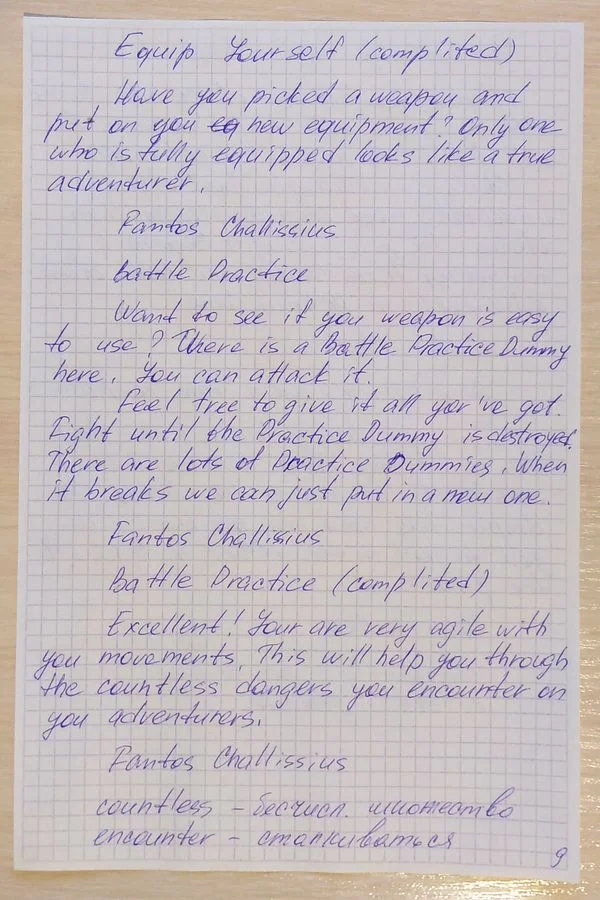 Equip Yourself (complited)
Have you picked a weapon and
put on you new equipment? Only one
who is fully equipped looks like a true
adventurer.
Fantos Challissius
Battle Practice
Want to see if you weapon is easy
to use? There is a Battle Practice Dummy
here. You can attack it.
Feel free to give it all you've got.
Fight until the Practice Dummy is destroyed.
There are lots of Practice Dummies. When
it breaks we can just put in a new one.
Fantos Challissius
Battle Practice (complited)
Excellent! Your are very agile with
you movements. This will help you through
the countless dangers you encounter on
you adventurers.
Fantos Challissius
countless – бесчисл. множество
encounter – сталкиваться
9